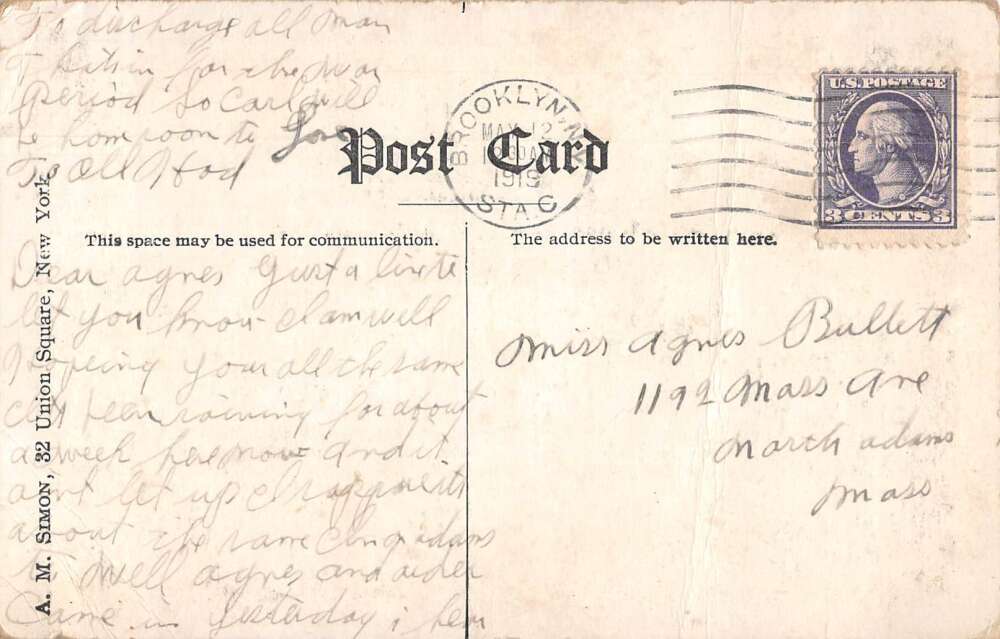 To discharge all man
for the war
period so Carl will
be hom soon to
To all
Post Card
BROOKLYN, N.Y.
MAY 12
1919
STA. C
U.S. POSTAGE
3 CENTS 3
This space may be used for communication.
The address to be written here.
A. M. SIMON, 32 Union Square, New York
Dear agnes Gust a line to
let you know I am well
Hopeing your all the same
its been raining for about
a week here now and it
aint let up I suppose its
about the same in adams
Well agnes and order
Came in yesterday i hear
Miss Agnes Bullett
1192 Mass Ave
North adams
Mass